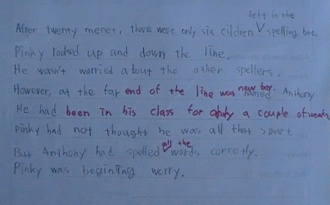 left in the
After twenty menet, there were only six cildren spelling bee.
Pinky looked up and down the line.
He wasn't worried about the other spellers.
However, at the far end of the line was new boy. named Anthony
He had been in his class for only a couple of weeks
Pinky had not thought he was all that smart
all the
But Anthony had spelled words corretly.
Pinky was beginting worry.